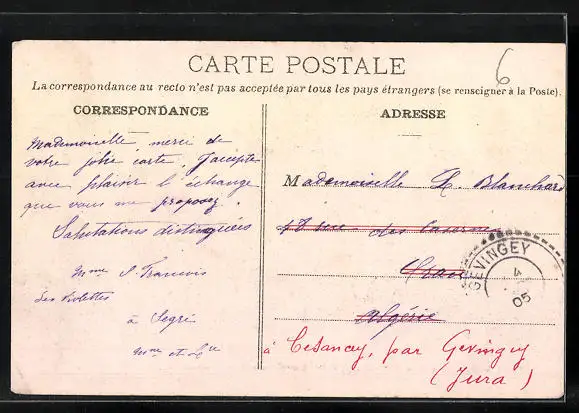 6
CARTE POSTALE
La correspondance au recto n'est pas acceptée par tous les pays étrangers (se renseigner à la Poste).
CORRESPONDANCE
Mademoiselle, merci de
votre jolie carte. J'accepte
avec plaisir l'échange
que vous me proposez.
Salutations distinguées
Mme S. François
Les Violettes
à Segré
Mne et Lre
ADRESSE
Mademoiselle L. Blanchard
18 rue des Casernes
Oran
Algérie
à Cesancey, par Gevingey
(Jura)
GEVINGEY
4
05